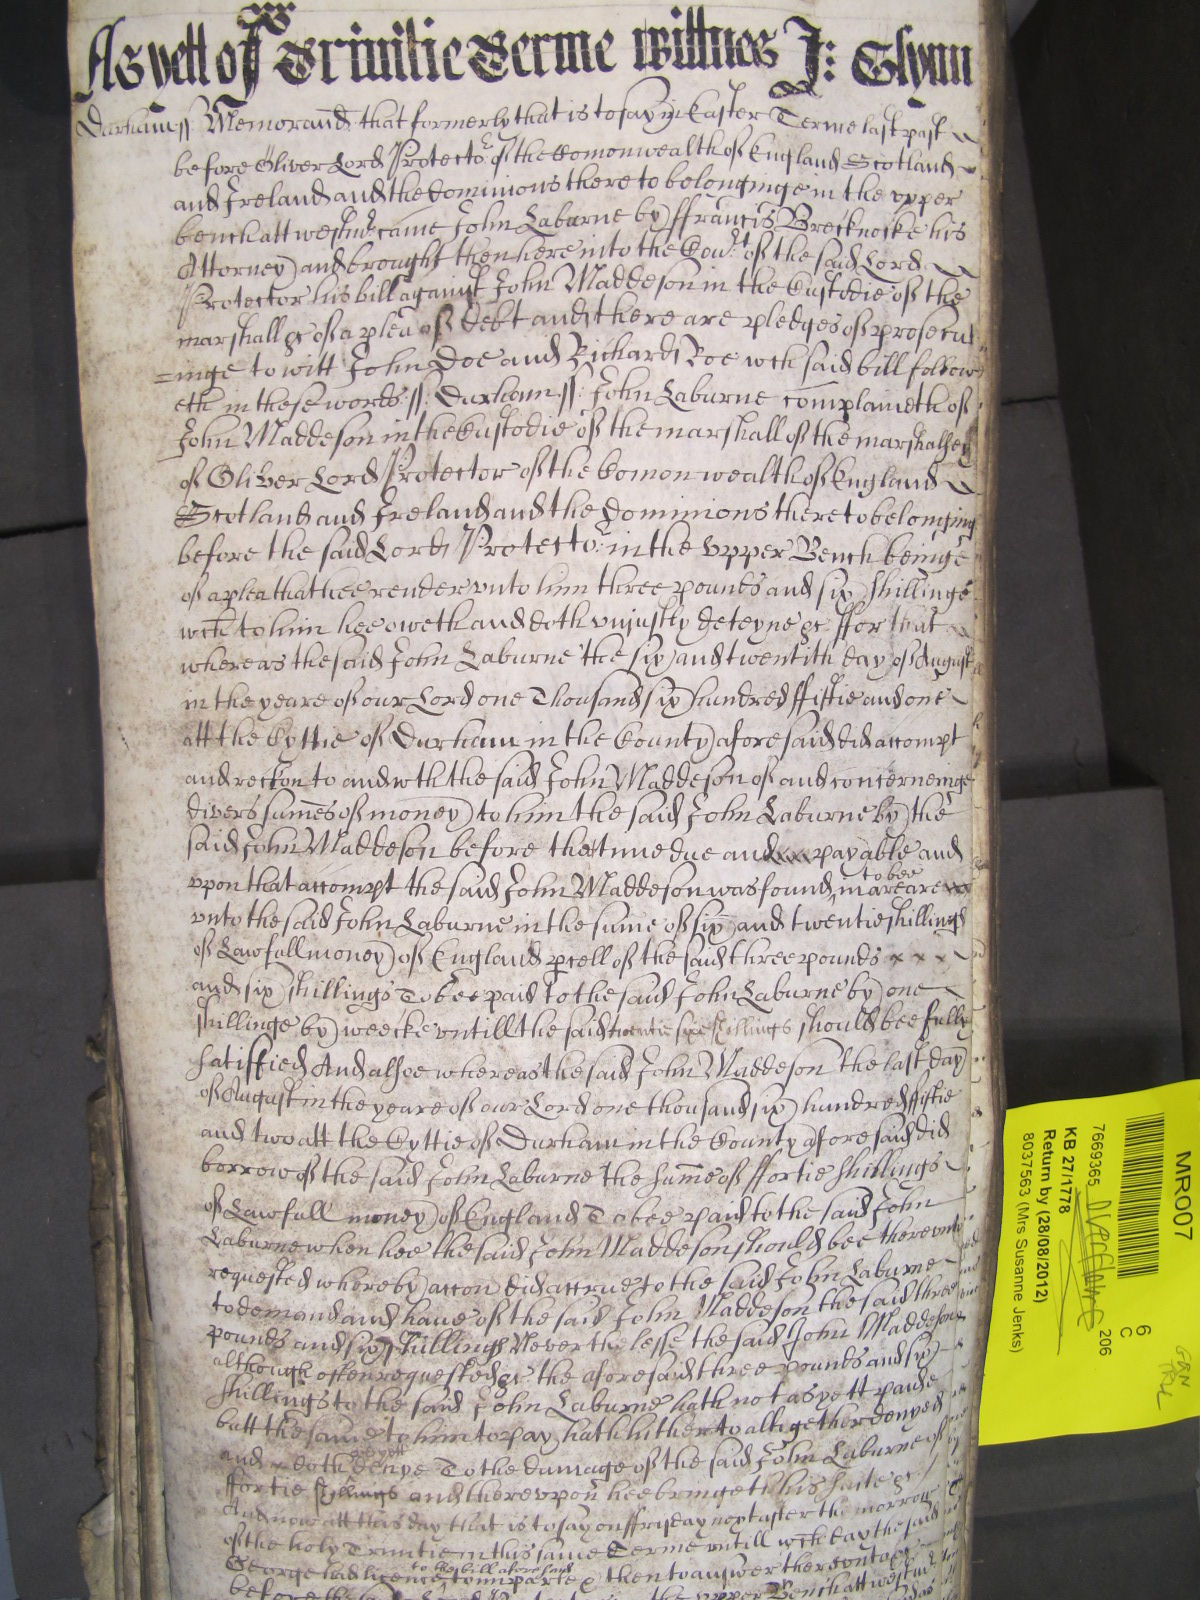 As yett of Trinitie Terme wittnes J: Glynn
Durham ss. Memorand that formerly that is to say in Easter Terme last past
before Oliver Lord Protector of the Comonwealth of England Scotland
and Ireland and the dominions there to belonginge in the upper
bench att westmr came John Laburne by ffrancis Brecknocke his
Attorney and brought then here into the Court of the said Lord
Protector his bill against John Maddeson in the Custodie of the
marshall &c of a plea of debt and there are pledges of prosecut
=inge to witt John Doe and Richard Roe wch said bill follow
eth in these words ss. Durham ss. John Laburne complaineth of
John Maddeson in the Custodie of the marshall of the marshalsey
of Oliver Lord Protector of the Comon wealth of England
Scotland and Ireland and the Dominions there to belonging
before the said Lord Protector in the Upper Bench beinge
of a plea that hee render unto him three pounds and six shillings
wch to him hee oweth and doth unjustly deteyne &c ffor that
whereas the said John Laburne the six and twentith day of August
in the yeare of our Lord one Thousand six hundred ffiftie and one
att the Cyttie of Durham in the County aforesaid did accompt
and reckon to and wth the said John Maddeson of and concerneinge
divers sumes of money to him the said John Laburne by the
said John Maddeson before that time due and payable and
upon that accompt the said John Maddeson was found to bee in areare
unto the said John Laburne in the sume of six and twentie shillings
of Lawfull money of England pcell of the said three pounds x x x
and six shillings To bee paid to the said John Laburne by one
shillinge by weecke untill the said twentie sixe shillings should bee fully
satisfied And alsoe whereas the said John Maddeson the last day
of August in the yeare of our Lord one thousand six hundred ffiftie
and two att the Cyttie of Durham in the County aforesaid did
borrow of the said John Laburne the sume of ffortie shillings
of Lawfull money of England To bee paid to the said John
Laburne when hee the said John Maddeson should bee thereunto
requested whereby accon did accrue to the said John Laburne
to demand and have of the said John Maddeson the said three
pounds and six shillings Never the lesse the said John Maddeson
although often requested &c the aforesaid three pounds and six
shillings to the said John Laburne hath not as yett paide
butt the same to him to pay hath hitherto altogether denyed
and doth as yett denye To the damage of the said John Laburne of
ffortie shillings and thereupon hee bringeth his suite &c
And now att this day that is to say on ffryday next after the morrow
of the holy Trinitie in this same Terme untill wch day the said
George had licence to the bill aforesaid to imparle & then to answer thereunto &c
before the said
the upper Bench att westmr
MR007
6
C
206
7669365
KB 27/1778
Return by (28/08/2012)
8037563 (Mrs Susanne Jenks)